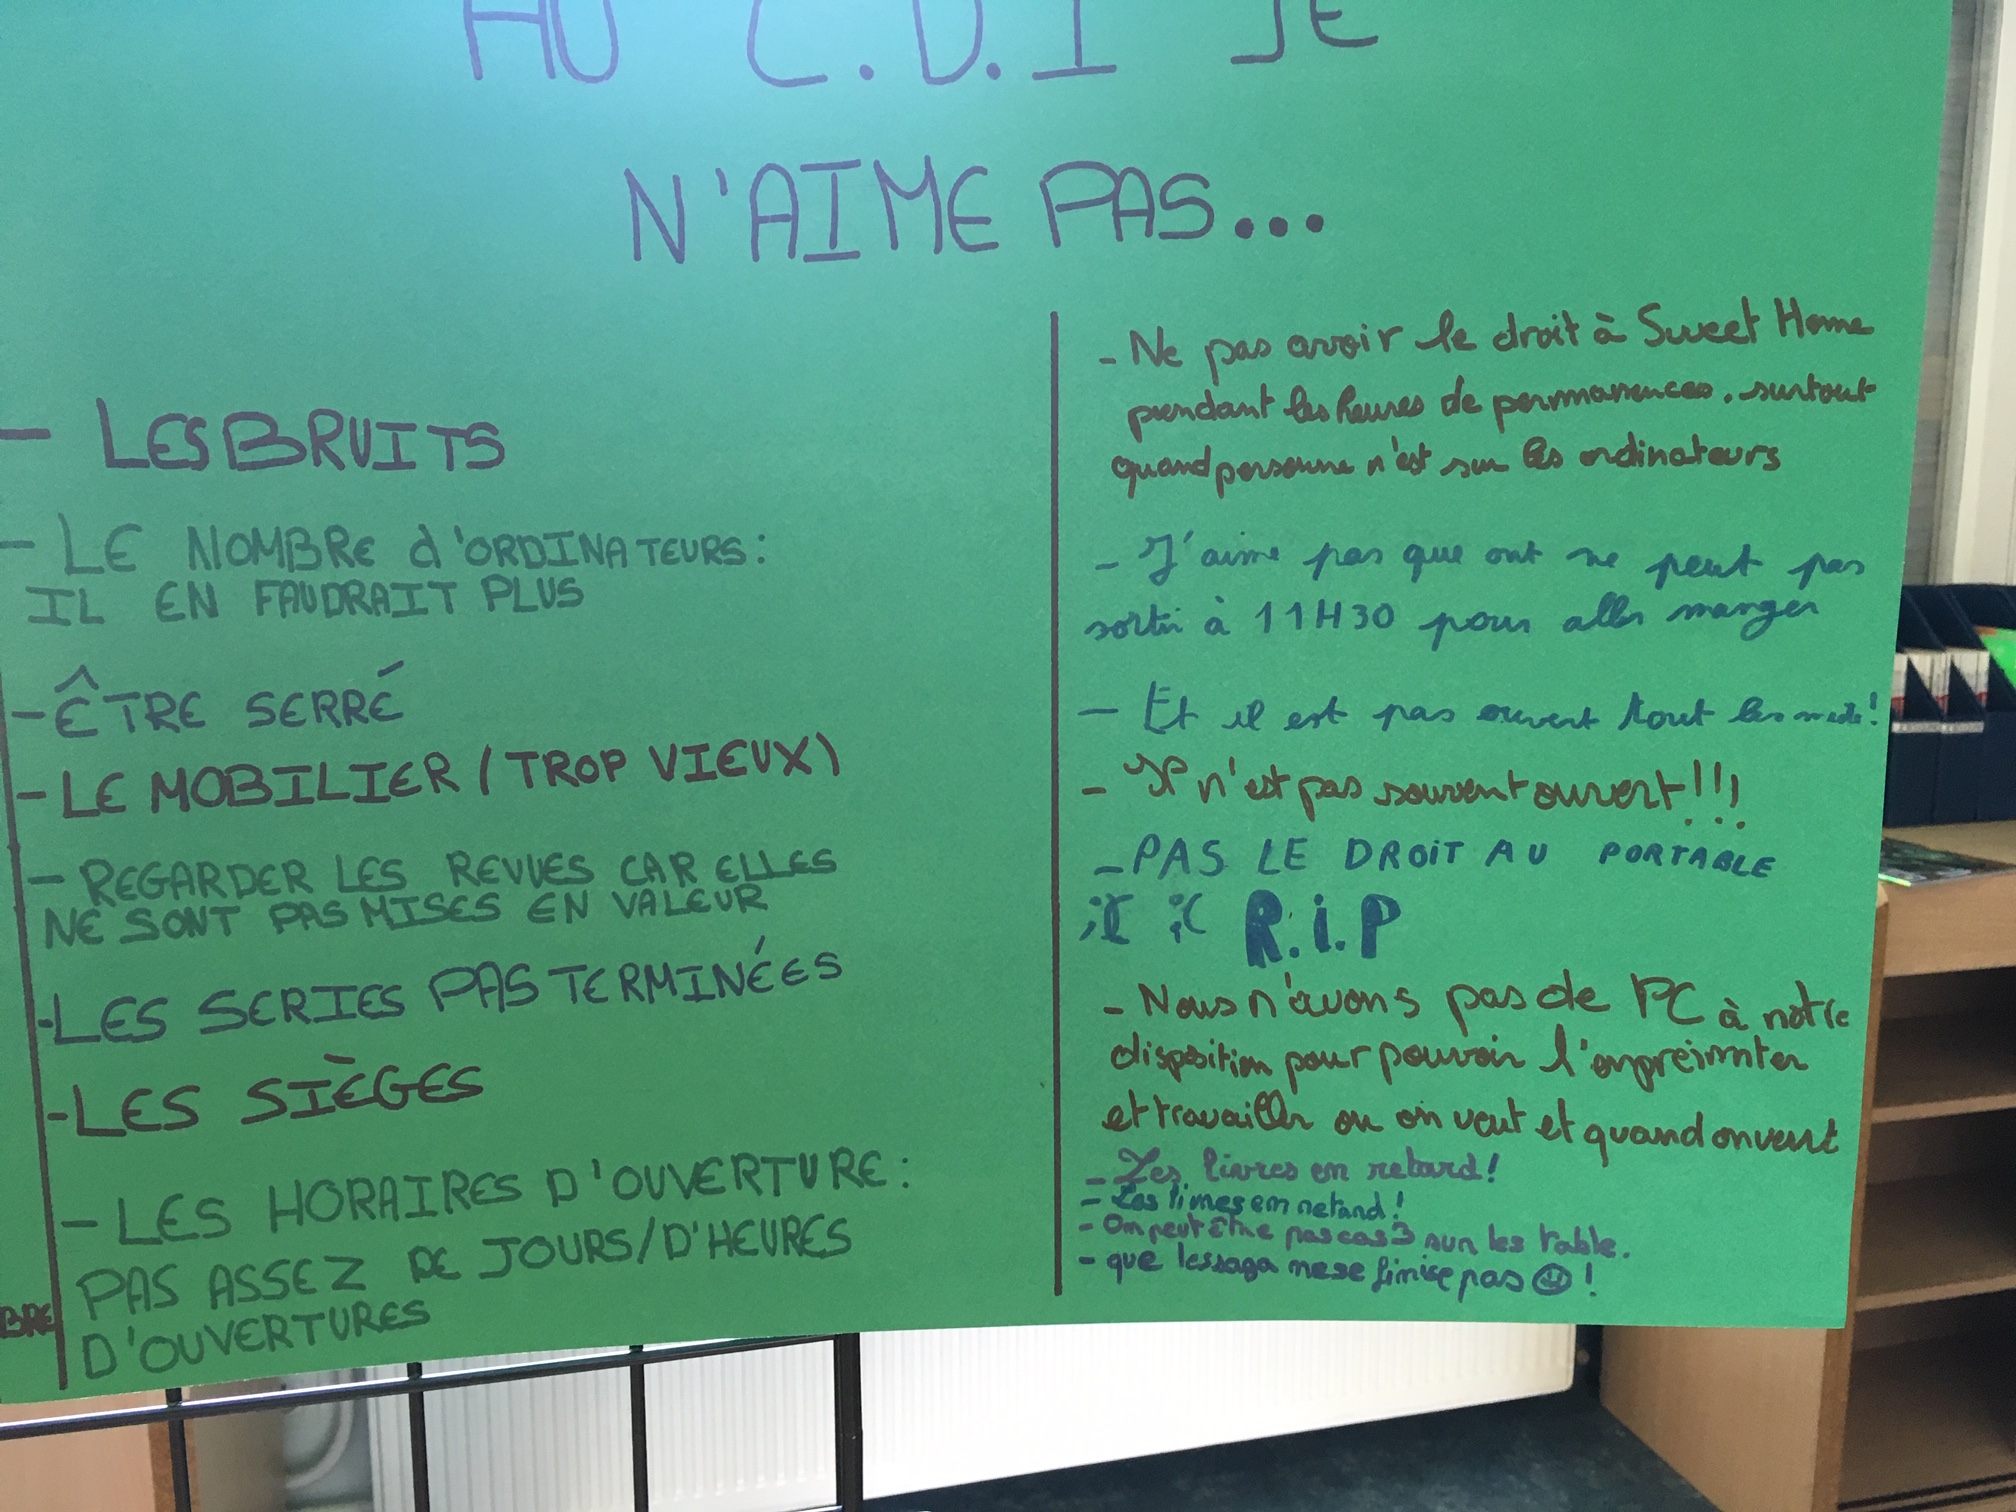 AU C.D.I JE
N'AIME PAS...
- LES BRUITS
- LE NOMBRE d'ORDINATEURS :
IL EN FAUDRAIT PLUS
- ÊTRE SERRÉ
- LE MOBILIER (TROP VIEUX)
- REGARDER LES REVUES CAR ELLES
NE SONT PAS MISES EN VALEUR
- LES SERIES PAS TERMINÉES
- LES SIÈGES
- LES HORAIRES D'OUVERTURE :
PAS ASSEZ DE JOURS/D'HEURES
D'OUVERTURES
BRE
- Ne pas avoir le droit à Sweet Home
pendant les heures de permanences, surtout
quand personne n'est sur les ordinateurs
- J'aime pas que ont ne peut pas
sortir à 11H30 pour aller manger
- Et il est pas ouvert tout les !
- Il n'est pas souvent ouvert !!!
- PAS LE DROIT AU PORTABLE
;( ;( R.i.P
- Nous n'avons pas de PC à notre
disposition pour pouvoir l'
et travailler ou on veut et quand on veut
- Les livres en retard !
- Les livres en retard !
- On peut être pas cas 3 sur les table.
- que les saga ne se finise pas !